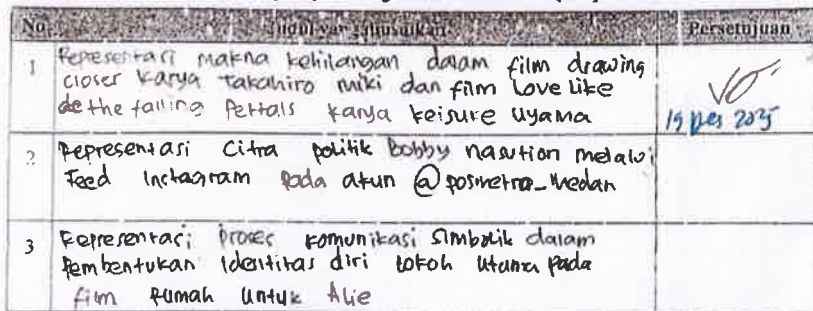 No. Judul yang diusulkan Persetujuan
1 Representasi makna kehilangan dalam film drawing
closer karya Takahiro miki dan film Love Like
the falling Pettals karya keisure Uyama
19 Des 2025
2 Representasi Citra politik Bobby nasution melalui
Feed Instagram pada akun @posmetro_Medan
3 Representasi proses komunikasi simbolik dalam
Pembentukan identitas diri tokoh utama pada
film Rumah Untuk Alie